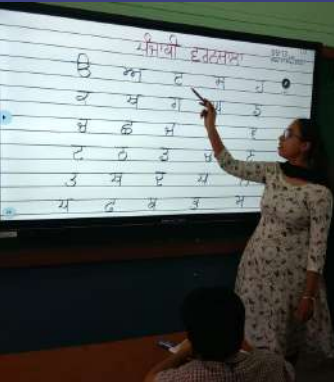 ਪੰਜਾਬੀ ਵਰਨਮਾਲਾ
ੳ ਅ ੲ ਸ ਹ
ਕ ਖ ਗ ਘ ਙ
ਚ ਛ ਜ ਞ
ਟ ਠ ਡ ਢ ਣ
ਤ ਥ ਦ ਧ ਨ
ਪ ਫ ਬ ਭ ਮ